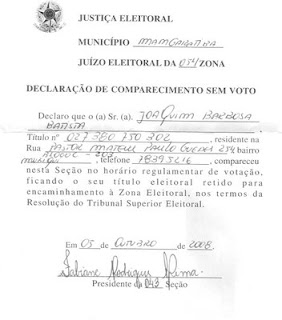 JUSTIÇA ELEITORAL
MUNICÍPIO
JUÍZO ELEITORAL DA 054 ZONA
DECLARAÇÃO DE COMPARECIMENTO SEM VOTO
Declaro que o (a) Sr. (a). JOAQUIM BARBOSA
BATISTA
Título nº 027380750302, residente na
Rua PASTOR MANOEL PAULO 254 bairro
, telefone 78395216, compareceu
nesta Seção no horário regulamentar de votação,
ficando o seu título eleitoral retido para
encaminhamento à Zona Eleitoral, nos termos da
Resolução do Tribunal Superior Eleitoral.
Em 05 de Outubro de 2008.
Fabiane Rodrigues
Presidente da 043 Seção